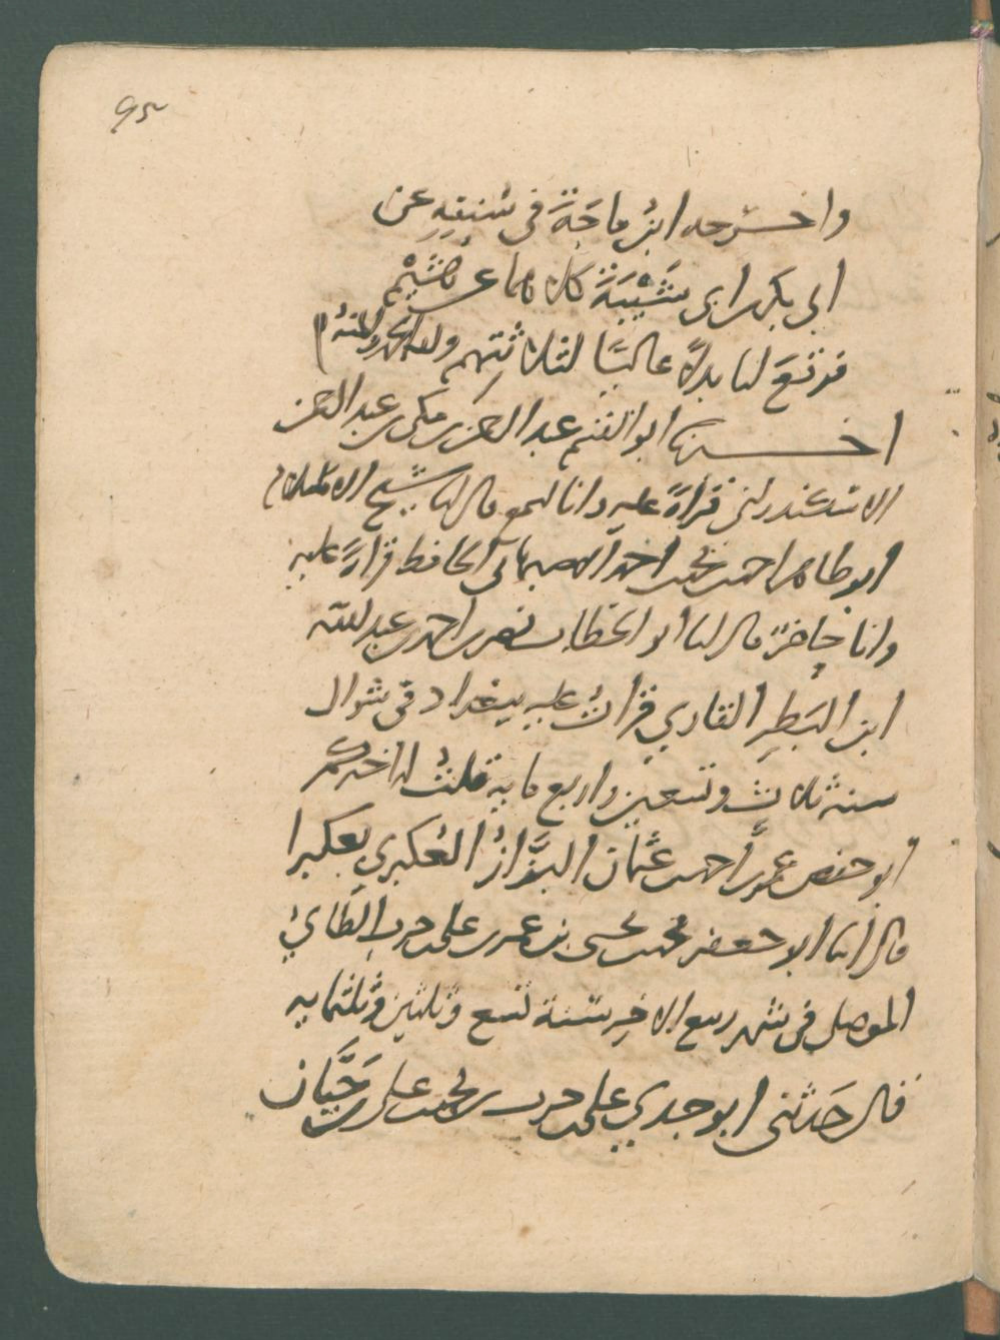 ٩٥
واخرجه ابن ماجَةَ في سُننِهِ عن
ابي بكر بن ابي شَيْبَةَ كلاهما عن هُشَيْمٍ
فوقعَ لنا بدلاً عاليًا لثلاثتهم ولله الحمد والمنة
اخبرنا ابو القسم عبد الرحمن بن مكي بن عبد الرحمن
الاسكندراني قراءةً عليه وانا اسمع قال انا شيخ الاسلام
ابو طاهر احمد بن محمد بن احمد الاصبهاني الحافظ قراءةً عليه
وانا حاضرٌ قال انا ابو الخطاب نصر بن احمد بن عبد الله
ابن البَطِرِ القاري قراتُ عليه ببغداد في شوال
سنة ثلاث وتسعين واربع ماية قلتُ له اخبركم
ابو حفص عمر بن احمد بن عثمان البزَّازُ العُكبري بعكبرا
قال انا ابو جعفر محمد بن يحيى بن عمر بن علي بن حرب الطَّائيُ
الموصل في شهر ربيع الاخر سنة تسع وثلثين وثلثمايه
قال حَدثني ابو جدي علي بن حرب بن محمد بن علي بن حَيَّان